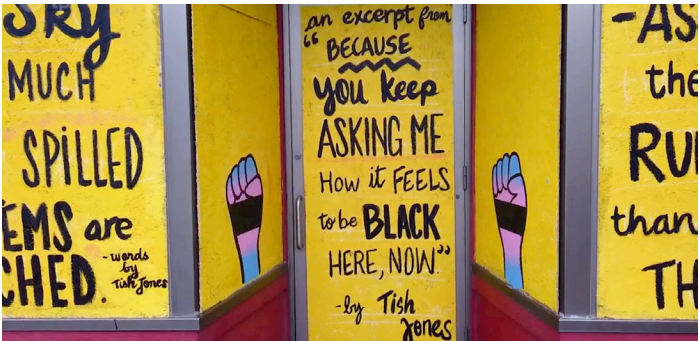 SKY
MUCH
SPILLED
EMS are
CHED.
-words
by
Tish Jones
an excerpt from
"BECAUSE
you keep
ASKING ME
How it FEELS
to be BLACK
HERE, NOW."
-by Tish
Jones
-AS
the
RU
than
TH